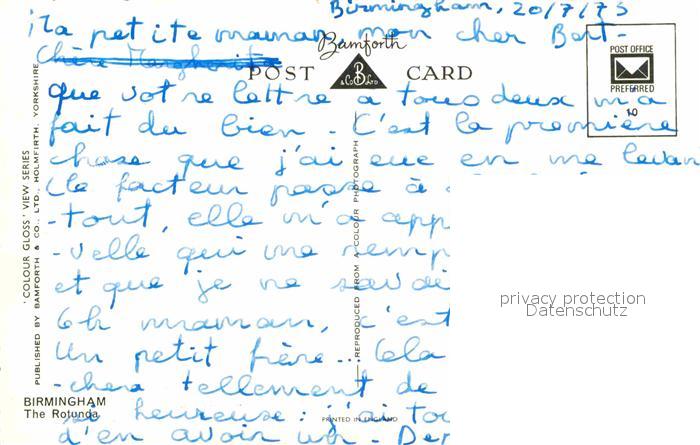 Birmingham, 20/7/75
Ma petite maman, mon cher Bert-
Chère
Bamforth
POST CARD
B
& Co Ltd
POST OFFICE
PREFERRED
que votre lettre a tous deux m'a
fait du bien - C'est la première
chose que j'ai eue en me levan
(le facteur passe à
-tout, elle m'a app
-velle qui me remp
et que je ne savai
Oh maman, c'est
Un petit frère... Cela
-chera tellement de
si heureuse : j'ai tou
d'en avoir un - Der
'COLOUR GLOSS' VIEW SERIES
PUBLISHED BY BAMFORTH & CO., LTD., HOLMFIRTH, YORKSHIRE
REPRODUCED FROM A COLOUR PHOTOGRAPH
BIRMINGHAM
The Rotunda
PRINTED IN ENGLAND
privacy protection
Datenschutz